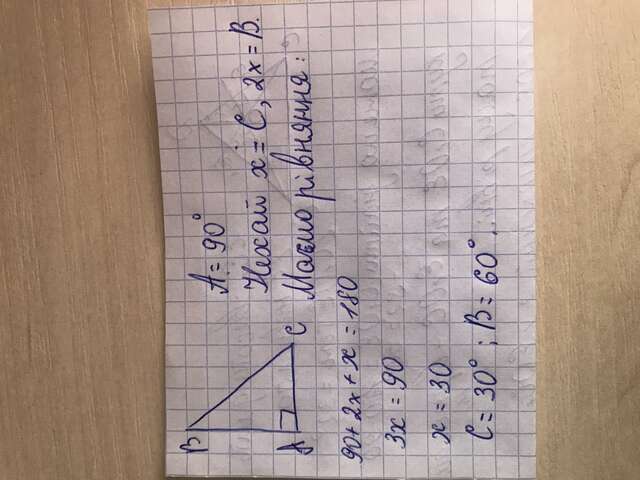 B
A
C
A = 90°
Нехай x = C, 2x = B.
Маємо рівняння:
90 + 2x + x = 180
3x = 90
x = 30
C = 30°; B = 60°.